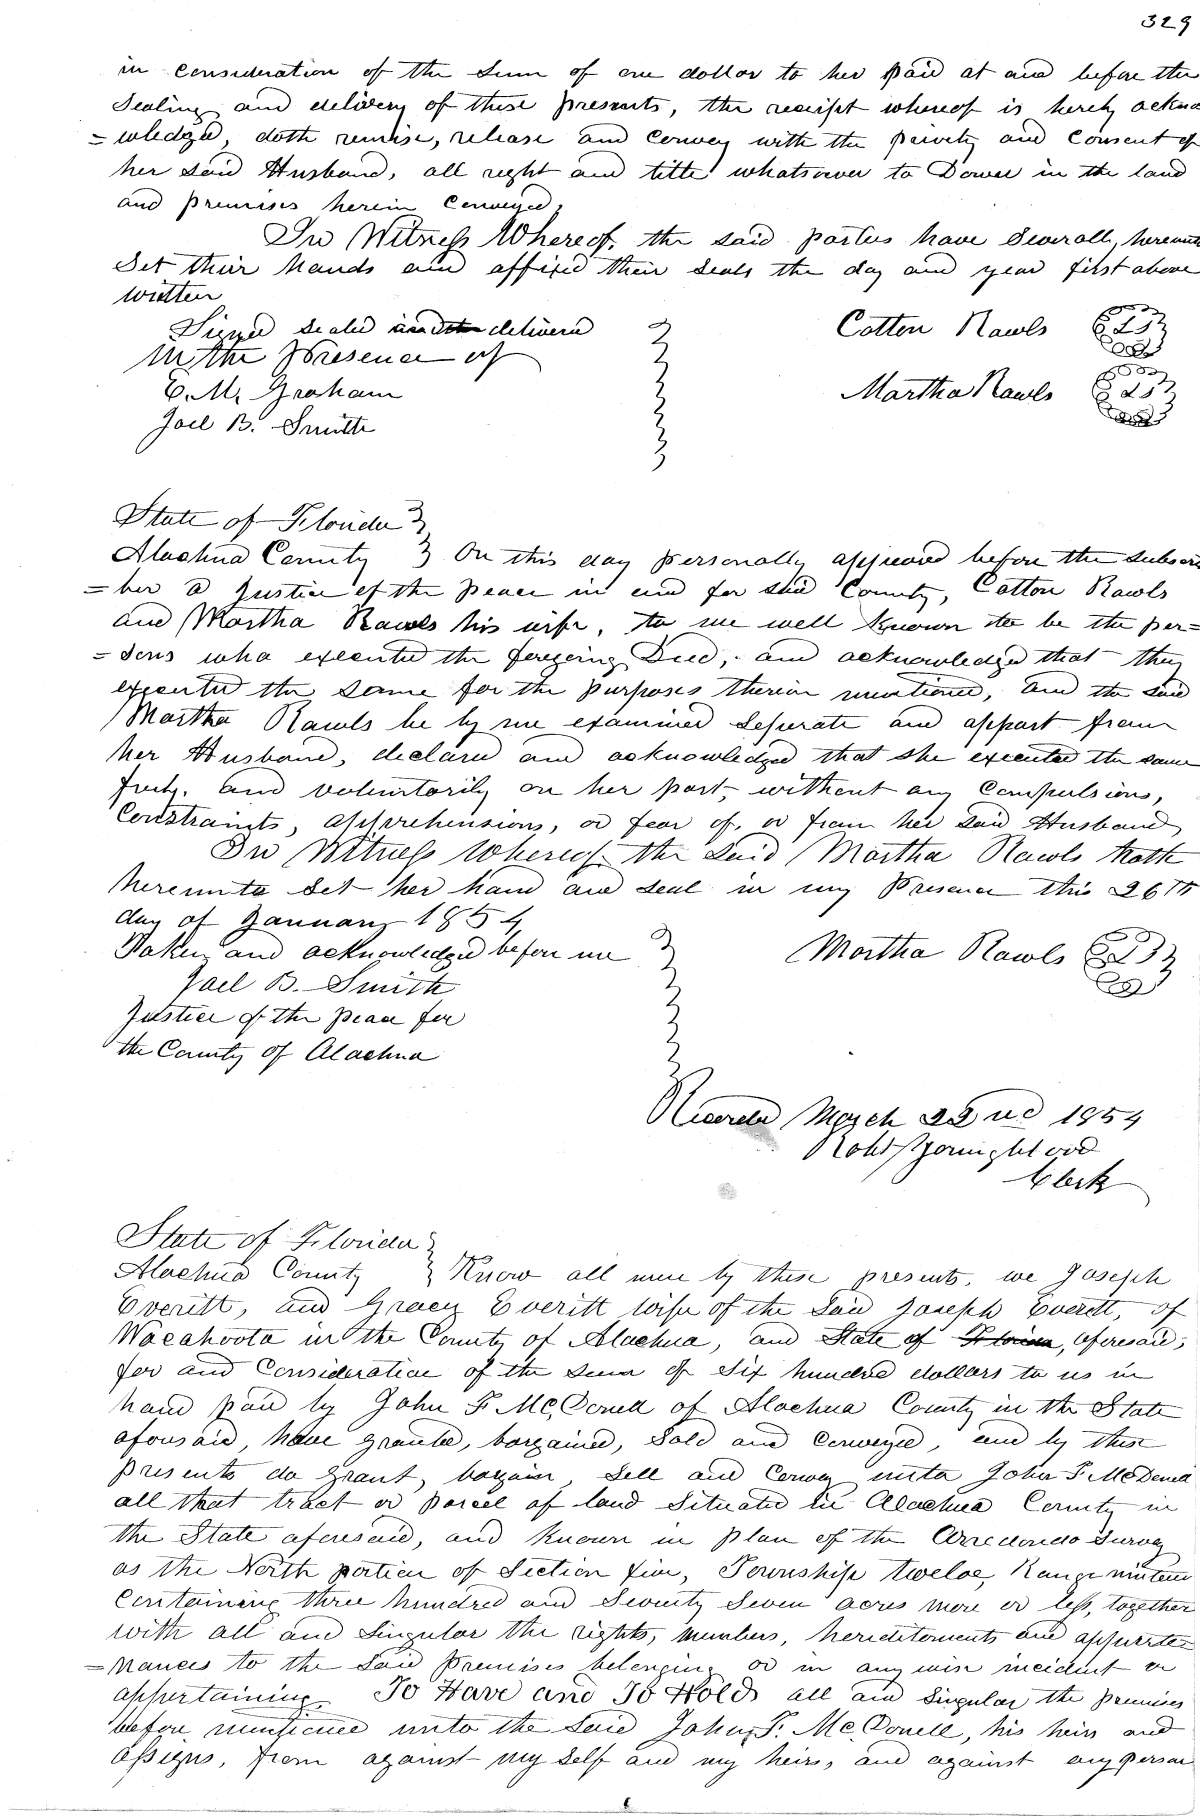 329
in consideration of the sum of one dollar to her paid at and before the
Sealing and delivery of these presents, the receipt whereof is hereby ackno
=wledged, doth remise, release and convey with the privity and Consent of
her said Husband, all right and title whatsoever to Dower in the land
and premises herein Conveyed,
In Witness Whereof, the said parties have Severally hereunto
Set their hands and affixed their seals the day and year first above
written
Signed sealed delivered
in the presence of
E. M. Graham
Joel B. Smith
Cotton Rawls
Martha Rawls
State of Florida
Alachua County } On this day personally appeared before the subscri
=ber a Justice of the peace in and for said County, Cotton Rawls
and Martha Rawls his wife, to me well known to be the per=
=sons who executed the foregoing Deed, and acknowledged that they
executed the same for the purposes therein mentioned, and the said
Martha Rawls be by me examined Seperate and appart from
her Husband, declared and acknowledged that she executed the same
freely, and voluntarily on her part, without any Compulsions,
Constraints, apprehensions, or fear of, or from her said Husband
In Witness Whereof the said Martha Rawls hath
hereunto set her hand and seal in my presence this 26th
day of January 1854
Taken and acknowledged before me
Joel B. Smith
Justice of the peace for
the County of Alachua
Martha Rawls
Recorded March 22nd 1854
Robt Youngblood
Clerk
State of Florida
Alachua County } Know all men by these presents, we Joseph
Everitt, and Gracy Everitt wife of the Said Joseph Everett, of
Wacahoota in the County of Alachua, and State of Florida, aforesaid,
for and Consideration of the sum of Six hundred dollars to us in
hand paid by John F. McDonell of Alachua County in the State
aforesaid, have granted, bargained, Sold and Conveyed, and by these
presents do grant, bargain, Sell and Convey unto John F. McDonell
all that tract or parcel of land Situated in Alachua County in
the State aforesaid, and known in plan of the Arredondo Survey
as the North portion of Section five, Township twelve, Range nineteen
Containing three hundred and Seventy Seven acres more or less, together
with all and Singular the rights, members, hereditements and appurte
=nances to the Said Premises belonging or in any wise incident or
appertaining. To Have and To Hold all and Singular the premises
before mentioned unto the said John F. McDonell, his heirs and
assigns, from against my self and my heirs, and against any person